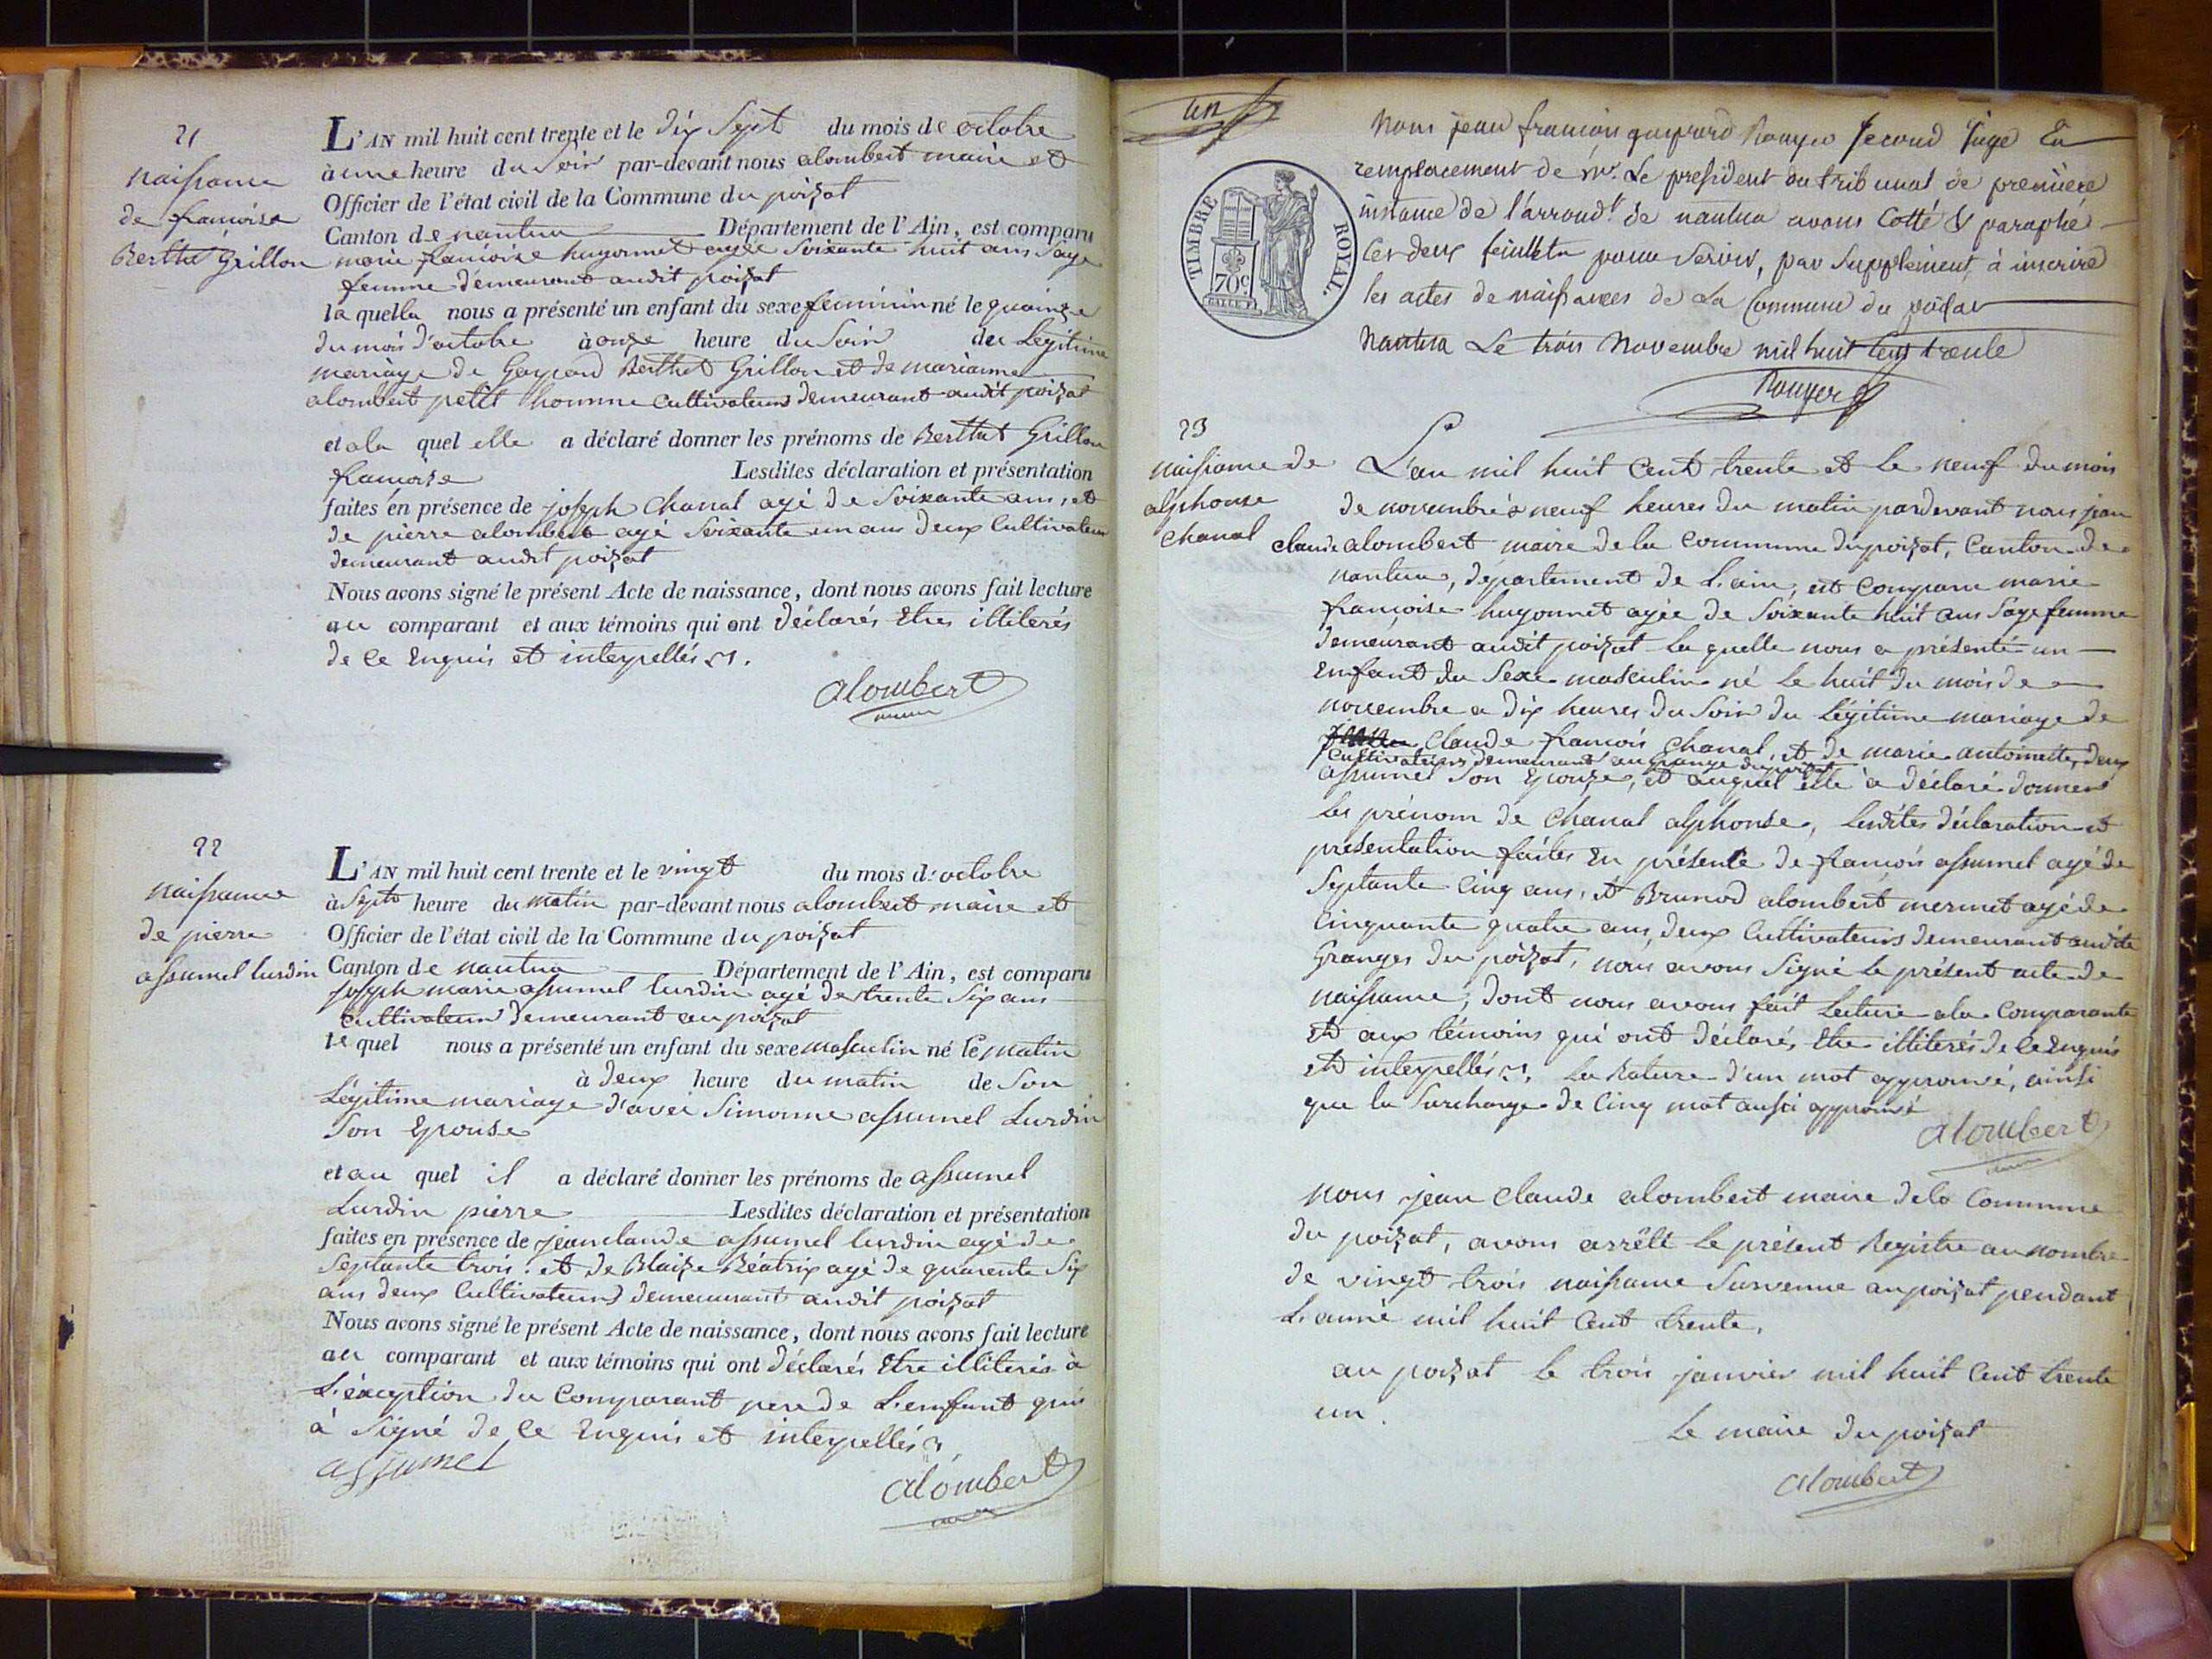 21
naissance
de françoise
Berthet Grillon
L'AN mil huit cent trente et le dix Sept du mois de octobre
à une heure du Soir par-devant nous alombert maire et
Officier de l'état civil de la Commune du poizat
Canton de nantua Département de l'Ain, est comparu
marie françoise hugonnet agée Soixante huit ans Sage
femme demeurant audit poizat
la quelle nous a présenté un enfant du sexe feminin né le quinze
du mois d'octobre à onze heure du Soir du Légitime
mariage de Gaspard Berthet Grillon et de marianne
alombert petit homme Cultivateurs demeurant audit poizat
et a la quel elle a déclaré donner les prénoms de Berthet Grillon
francoise Lesdites déclaration et présentation
faites en présence de joseph Chanal agé de Soixante ans, et
de pierre alombert agé Soixante un ans deux Cultivateurs
demeurant audit poizat
Nous avons signé le présent Acte de naissance, dont nous avons fait lecture
au comparant et aux témoins qui ont déclarés Etres illiterés
de Ce Enquis et interpellés
alombert
22
naissance
de pierre
assumel lurdin
L'AN mil huit cent trente et le vingt du mois d'octobre
à Sept heure du matin par-devant nous alombert maire et
Officier de l'état civil de la Commune du poizat
Canton de nantua Département de l'Ain, est comparu
joseph marie assumel lurdin agé de trente Six ans
Cultivateur demeurant au poizat
le quel nous a présenté un enfant du sexe masculin né le matin
à deux heure du matin de Son
Légitime mariage d'avec Simonne assumel Lurdin
Son Epouse
et au quel il a déclaré donner les prénoms de assumel
Lurdin pierre Lesdites déclaration et présentation
faites en présence de jean claude assumel lurdin agé de
Septante trois. et de Blaize Béatrix agé de quarente Six
ans deux Cultivateurs demeurant audit poizat
Nous avons signé le présent Acte de naissance, dont nous avons fait lecture
au comparant et aux témoins qui ont déclarés Etre illiterés à
L'exception du Comparant pere de L'enfant qui
à Signé de Ce Enquis et interpellés
assumel
alombert
un
Nous jean françois gaspard Rouyer Second juge En
remplacement de Mr. Le president du tribunal de première
instance de l'arrondt de nantua avons Cotté & paraphé
Ces deux feuillets pour Servir, par Supplément, à inscrire
les actes de naissances de La Commune du poizat
Nantua Le trois Novembre mil huit Cent trente
Rouyer
TIMBRE ROYAL.
70c
23
naissance de
alphonse
Chanal
L'an mil huit Cent trente et le neuf du mois
de novembre à neuf heures du matin pardevant nous jean
claude alombert maire de la Commune du poizat, Canton de
nantua, département de L'ain, est Comparue marie
françoise hugonnet agée de Soixante huit ans Sage femme
demeurant audit poizat la quelle nous a présenté un
Enfant du Sexe masculin né le huit du mois de
novembre a dix heures du Soir du Légitime mariage de
Claude françois Chanal, et de marie antoinette, deux
Cultivateurs demeurant au Grange du poizat
assumel Son Epouze, et auquel Elle à déclaré donner
les prénom de Chanal alphonse, Lesdites déclaration et
présentation faites En présence de françois assumel agé de
Septante Cinq ans, et Brunod alombert mermet agé de
Cinquante quatre ans, deux Cultivateurs demeurant audite
Granges du poizat, nous avons Signé le présent acte de
naissance, dont nous avons fait Lecture a la Comparante
et aux témoins qui ont déclarés Etre illiterés de Ce Enquis
et interpellés. La Rature d'un mot approuvé, ainsi
que la Surcharge de Cinq mot aussi approuvé
alombert
Nous jean Claude alombert maire de la Commune
du poizat, avons arrêté le présent Registre au nombre
de vingt trois naissance Survenue au poizat pendant
L'année mil huit Cent trente,
au poizat le trois janvier mil huit Cent trente
un.
Le maire du poizat
alombert